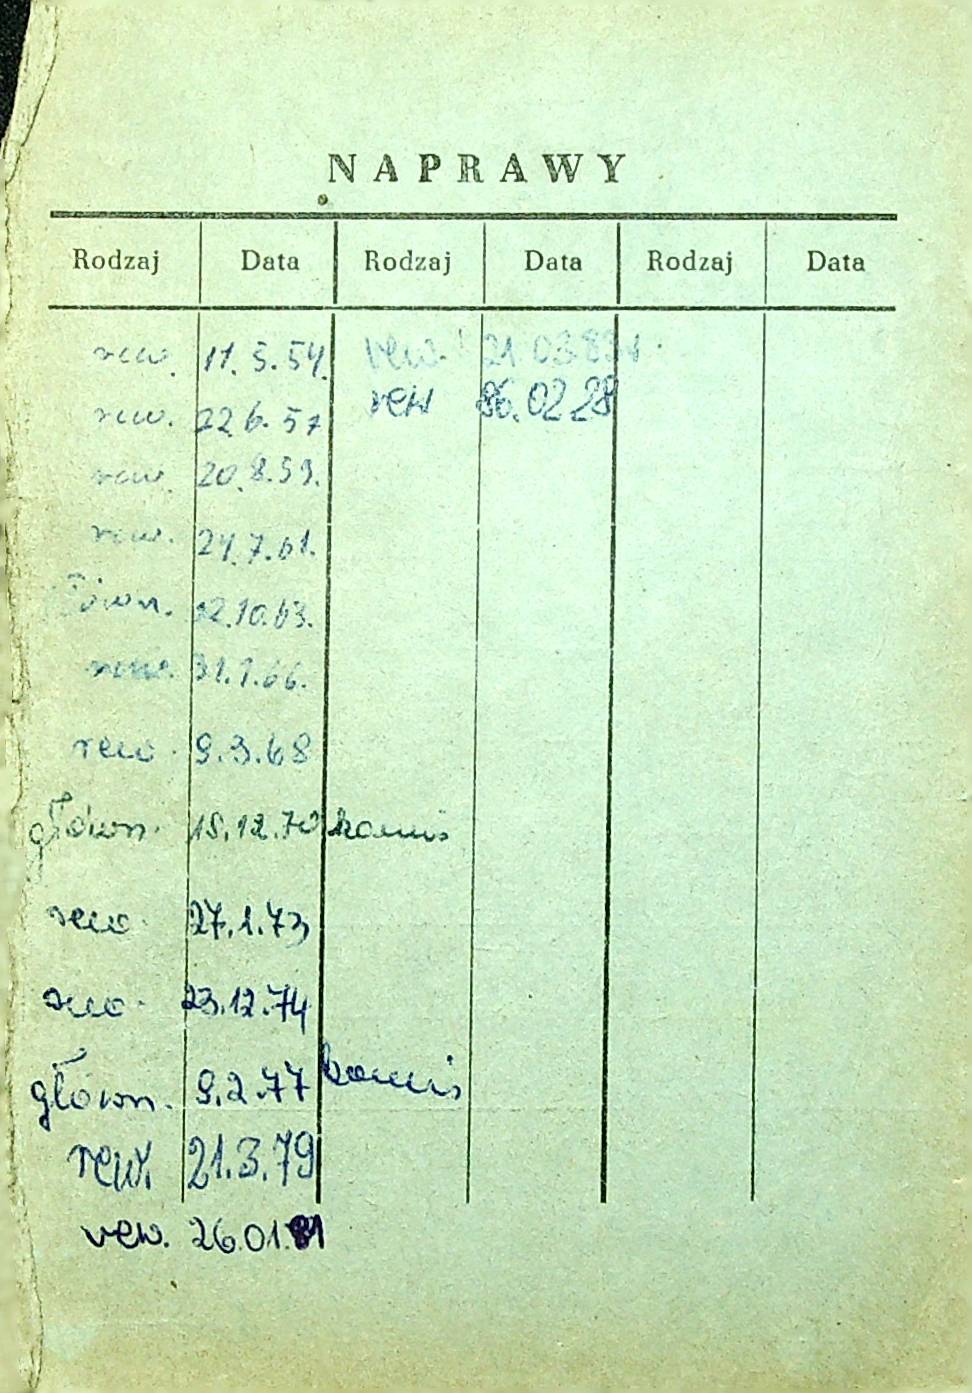 NAPRAWY
Rodzaj Data Rodzaj Data Rodzaj Data
rew. 17.5.54. rew. 21 03 83
rew. 22.6.57 rew 86.02 28
rew. 20.8.59.
rew. 24.7.61.
główn. 12.10.63.
rew. 31.1.66.
rew. 9.3.68
główn. 18.12.70 komis
rew. 27.1.73
rew. 23.12.74
główn. 9.2.77 komis
rew. 21.3.79
rew. 26.01.81